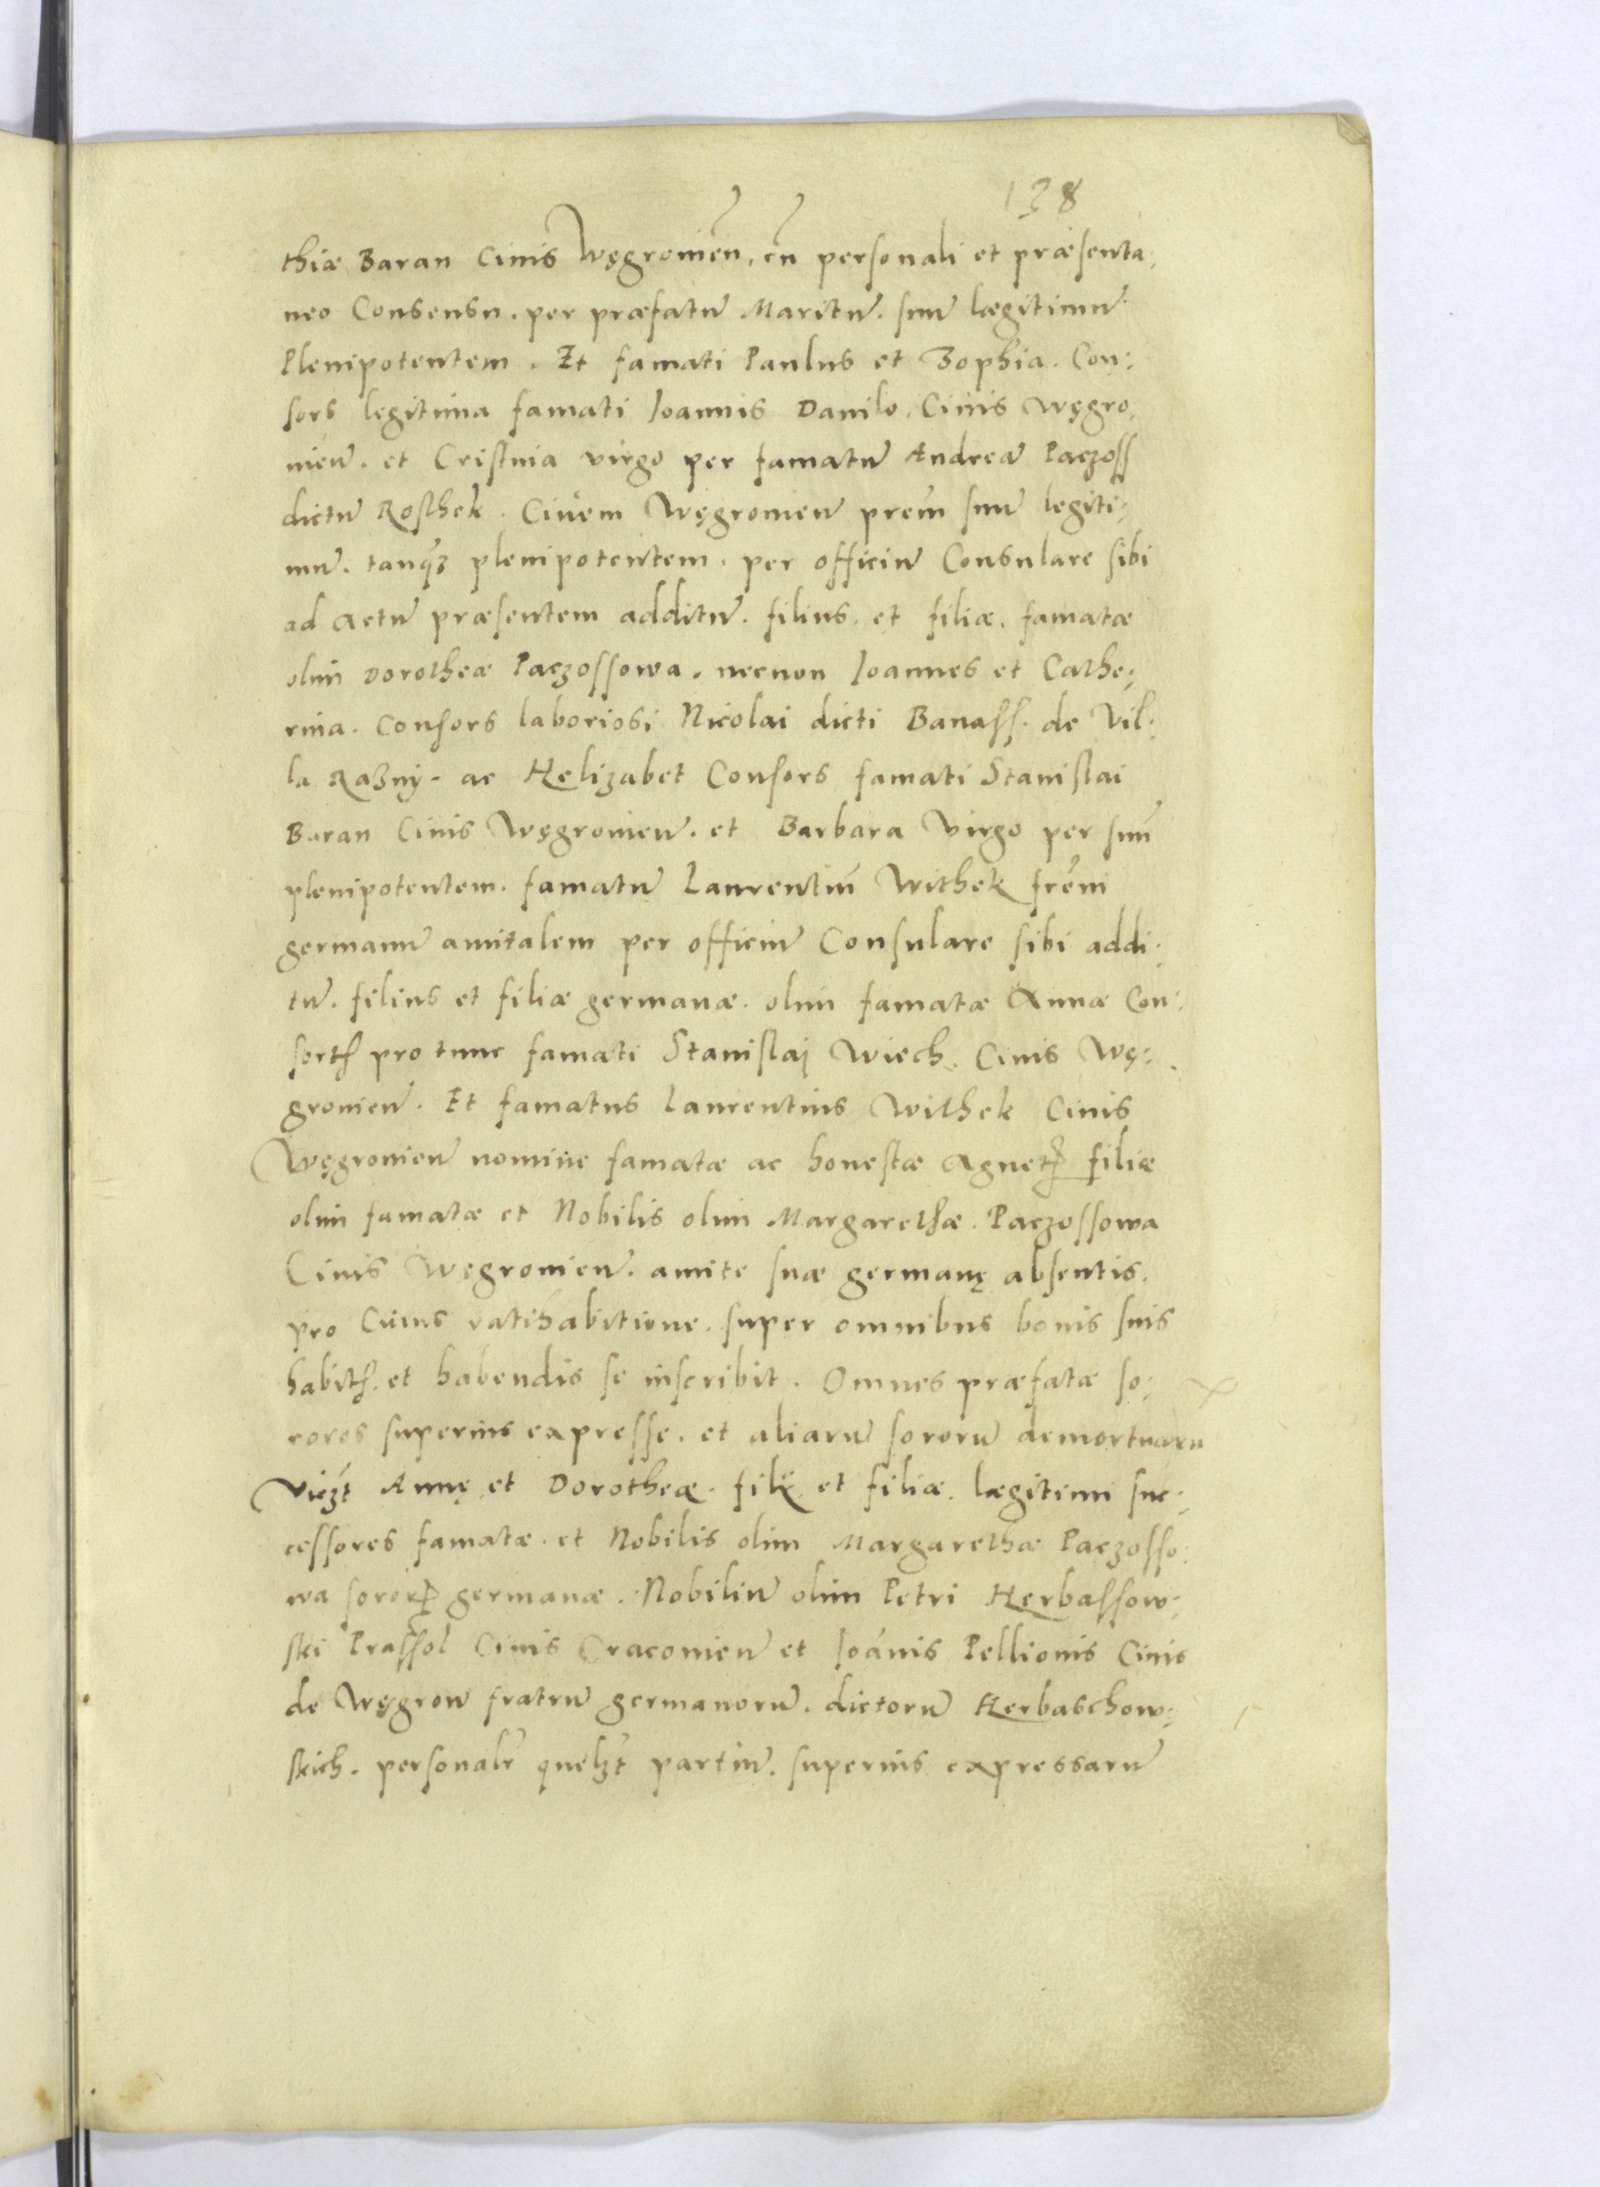 138
thiæ Baran Ciuis Węgrouieñ, cũ personali et præsenta:
neo Consensu. per præfatũ Maritũ. suũ lægitimũ
Plenipotentem. Et famati Paulus et Zophia. Con:
sors legitima famati Ioannis Danilo. Ciuis Węgro:
uieñ. et Cristina virgo per famatũ Andreã Paczoss
dictũ Roschek. Ciuem Węgrouieñ prẽm suũ legiti:
mũ. tanqᷓȝ plenipotentem. per officiũ Consulare sibi
ad Actũ præsentem additũ. filius. et filiæ. famatæ
olim Dorotheæ Paczossowa. necnon Ioannes et Cathe:
rina. Consors laboriosi Nicolai dicti Banass. de Vil:
la Razny. ac Helizabet Consors famati Stanislai
Baran Ciuis Węgrouieñ. et Barbara Virgo per suũ
plenipotentem. famatũ Laurentiũ Withek frẽm
germanũ amitalem per officiũ Consulare sibi addi:
tũ. filius et filiæ germanæ. olim famatæ Annæ Con:
sortꝭ pro tunc famati Stanislaj Wiech. Ciuis Wę:
grouieñ. Et famatus Laurentius Withek Ciuis
Węgrouieñ nomine famatæ ac honestæ Agnetꝭ filiæ
olim famatæ et Nobilis olim Margarethæ. Paczossowa
Ciuis Węgrouieñ. amite suæ germanę absentis.
pro Cuius ratihabitione. super omnibus bonis suis
habitꝭ. et habendis se inscribit. Omnes præfatæ so:
rores superius expresse. et aliarũ sororũ demortuarũ
Viczt Annę et Dorotheæ. filij et filiæ. lægitimi suc:
cessores famatæ. et Nobilis olim Margarethæ Paczosso:
wa sororꝭ germanæ. Nobiliũ olim Petri Herbassow:
ski Prassol Ciuis Cracouieñ et Ioãnis Pellionis Ciuis
de Węgrow fratrũ germanorũ. dictorũ Herbaschow:
skich. personalr̃ quelzt partiũ. superius expressarũ